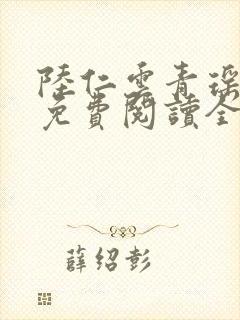 陸仁雲青瑶
免費閱讀全
薛紹彭